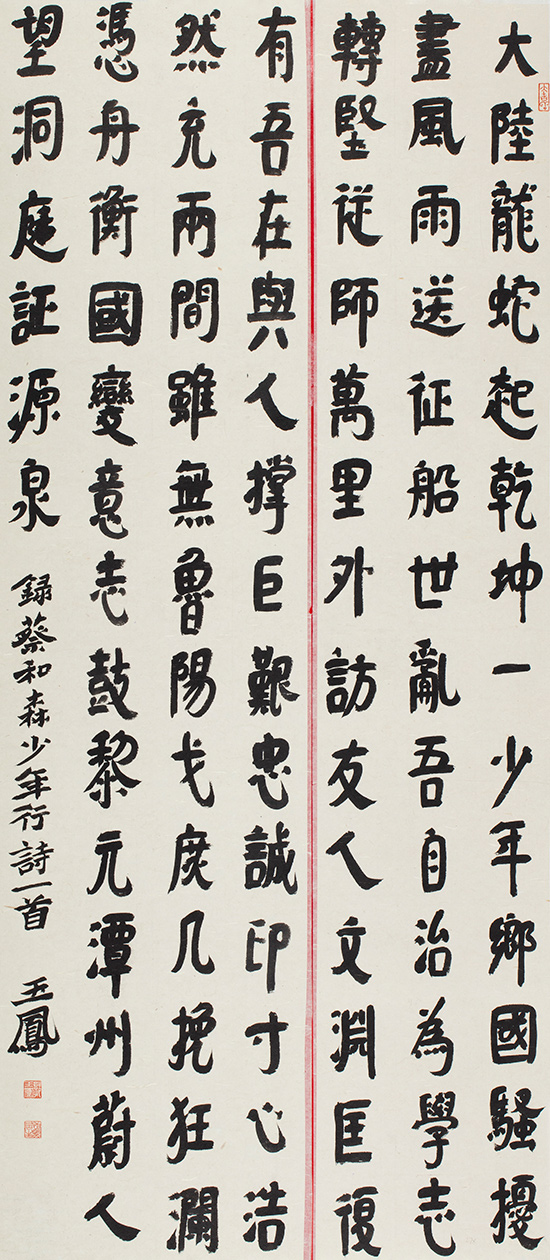 大陸龍蛇起乾坤一少年鄉國騷擾
盡風雨送征船世亂吾自治為學志
轉堅從師萬里外訪友人文淵匡復
有吾在與人撐巨艱忠誠印寸心浩
然充兩間雖無魯陽戈庶几挽狂瀾
憑舟衡國變意志鼓黎元潭州蔚人
望洞庭証源泉
録蔡和森少年行詩一首 玉鳳